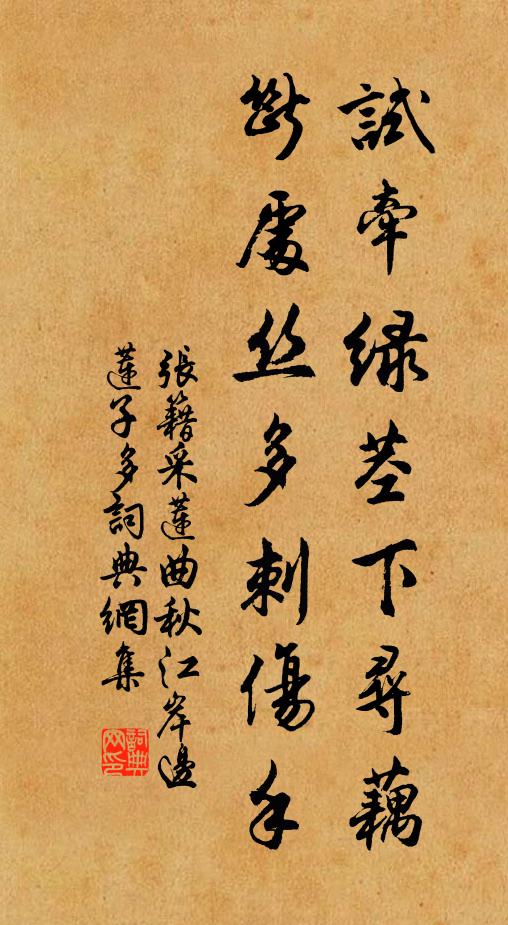 試牽綠莖下尋藕
斷處丝多刺傷手
張籍采蓮曲秋江岸邊
蓮子多詞典網集
詞典
网印